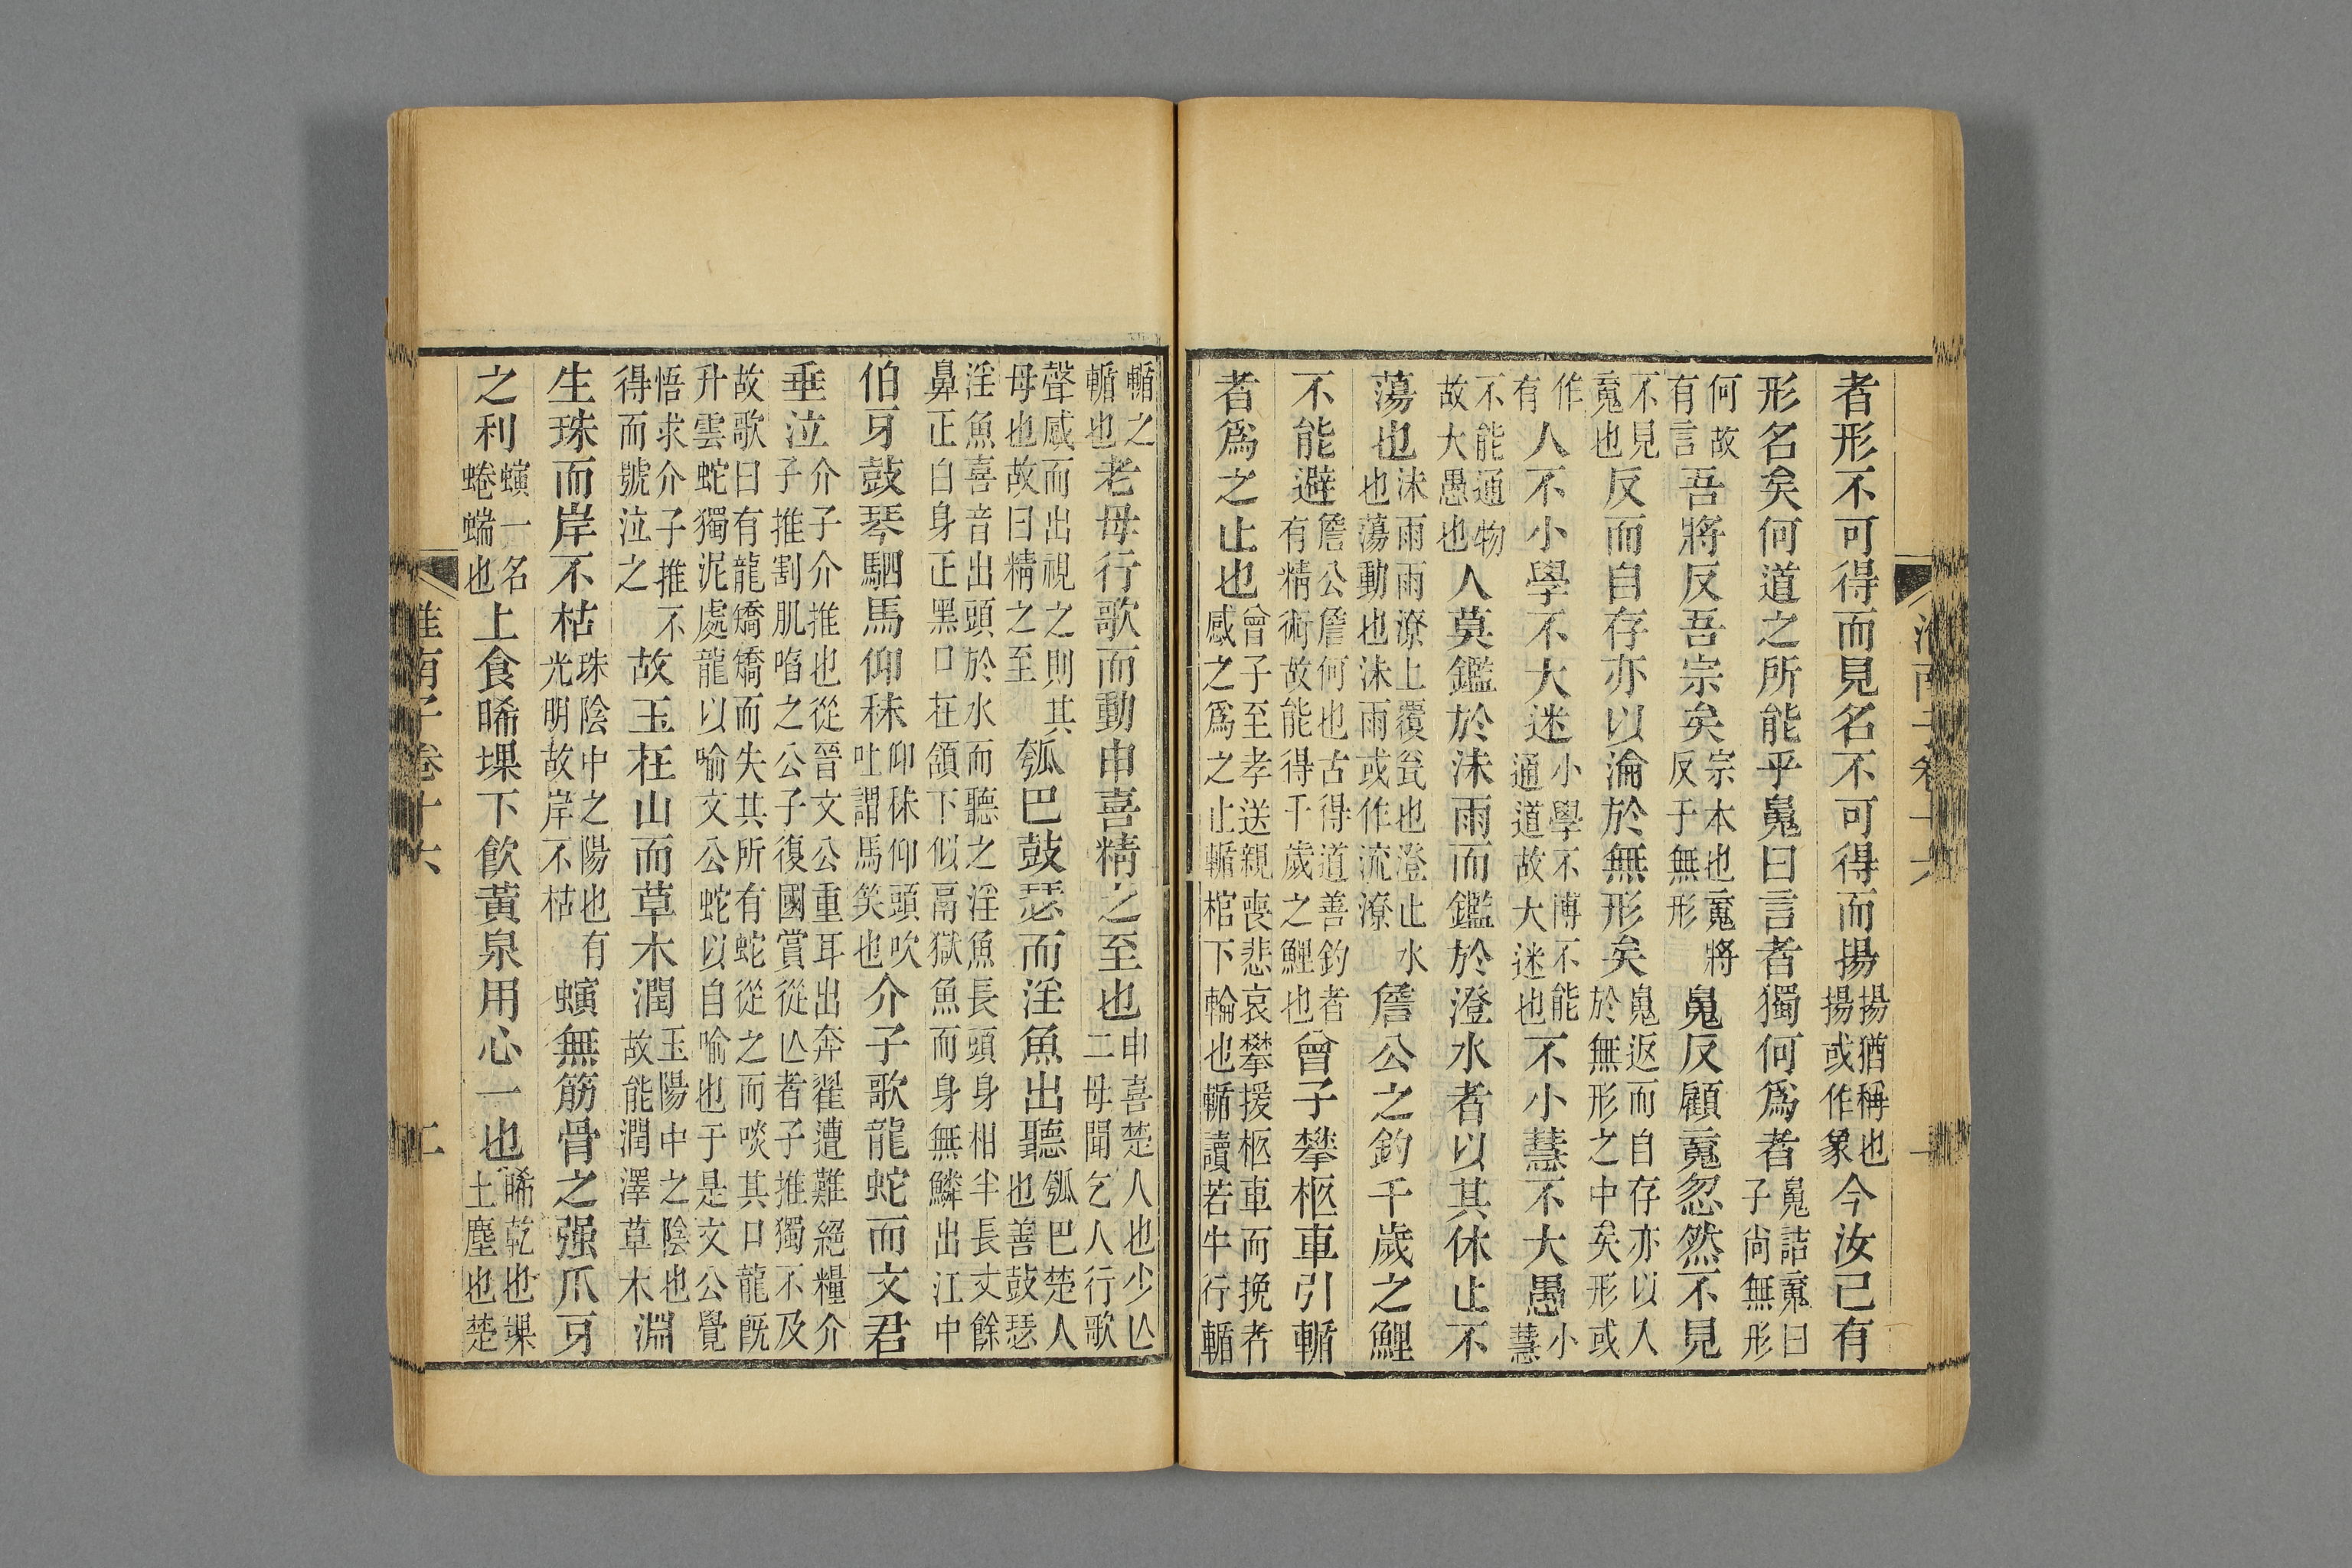 者形不可得而見名不可得而揚揚猶稱也揚或作象今汝已有
形名矣何道之所能乎䰟曰言者獨何爲者䰟詰魄曰子尚無形
何故有言吾將反吾宗矣宗本也魄將反于無形䰟反顧魄忽然不見
不見魄也反而自存亦以淪於無形矣䰟返而自存亦以人於無形之中矣形或
作有人不小學不大迷小學不博不能通道故大迷也不小慧不大愚小慧
不能通物故大愚也人莫鑑於沬雨而鑑於澄水者以其休止不
蕩也沬雨雨潦上覆瓮也澄止水也蕩動也沬雨或作流潦詹公之釣千歲之鯉
不能避詹公詹何也古得道善釣者有精術故能得千歲之鯉也曾子攀柩車引輴
者爲之止也曾子至孝送親喪悲哀攀援柩車而挽者感之爲之止輴棺下輪也輴讀若牛行輴
輴之輴也老母行歌而動申喜精之至也申喜楚人也少亾二母聞乞人行歌
聲感而出視之則其母也故曰精之至瓠巴鼓瑟而淫魚出聽瓠巴楚人也善鼓瑟
淫魚喜音出頭於水而聽之淫魚長頭身相半長丈餘鼻正白身正黑口在頷下似鬲獄魚而身無鱗出江中
伯牙鼓琴駟馬仰秣仰秣仰頭吹吐謂馬笑也介子歌龍蛇而文君
垂泣介子介推也從晉文公重耳出奔翟遭難絕糧介子推割肌啗之公子復國賞從亾者子推獨不及
故歌曰有龍矯矯而失其所有蛇從之而啖其口龍旣升雲蛇獨泥處龍以喻文公蛇以自喻也于是文公覺
悟求介子推不得而號泣之故玉在山而草木潤玉陽中之陰也故能潤澤草木淵
生珠而岸不枯珠陰中之陽也有光明故岸不枯螾無筋骨之强爪牙
之利螾一名蜷蠕也上食晞堁下飲黃泉用心一也晞乾也堁土塵也楚
淮南子卷十六